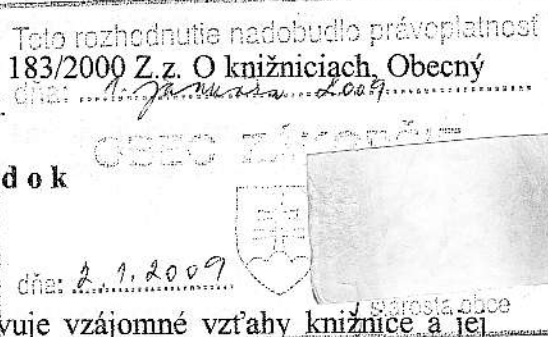 Toto rozhodnutie nadobudlo právoplatnosť
183/2000 Z.z. O knižniciach, Obecný
dňa: 1. januára 2009
OBEC
d o k
dňa: 2.1.2009
starosta obce
vuje vzájomné vzťahy knižnice a jej